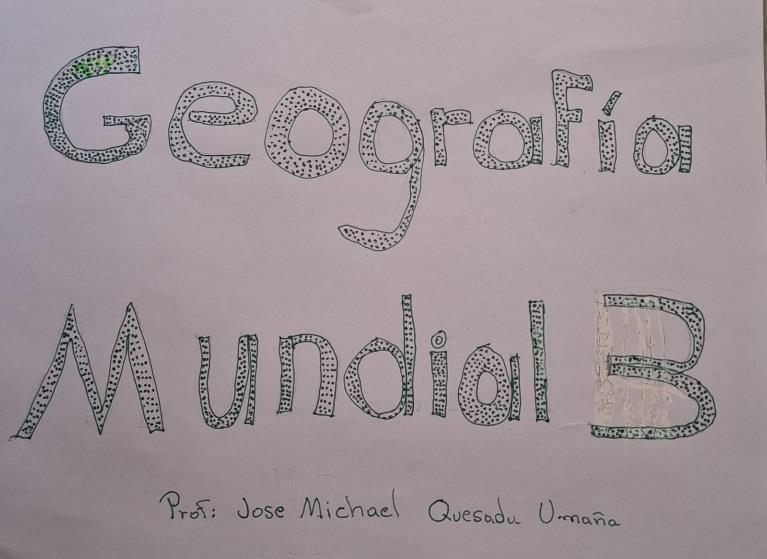 Geografía
Mundial B
Prof: Jose Michael Quesada Umaña